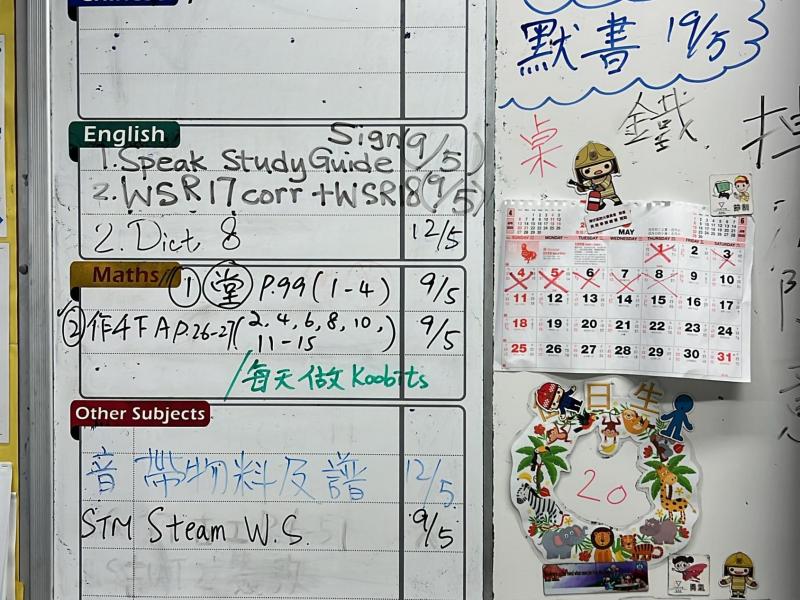 默書 19/5
桌 鐵
English
Sign(9/5)
1. Speak Study Guide
2. WSR17 corr + WSR18(9/5)
2. Dict 8 12/5
Maths
① 堂 P.99 (1-4) 9/5
② 作4下A P.26-27(2, 4, 6, 8, 10, 11-15) 9/5
/每天做 Koobits
Other Subjects
音 帶物料及譜 12/5
STM Steam W.S. 9/5
節制
4 MAY 6
SUNDAY MONDAY TUESDAY WEDNESDAY THURSDAY FRIDAY SATURDAY
1 2 3
4 5 6 7 8 9 10
11 12 13 14 15 16 17
18 19 20 21 22 23 24
25 26 27 28 29 30 31
日生
20
勇氣